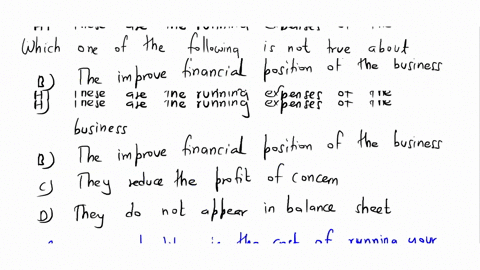 Which one of the following is not true about
B) The improve financial position of the business
A) These are the running expenses of the
business
B) The improve financial position of the business
C) They reduce the profit of concern
D) They do not appear in balance sheet
is the cost of running your